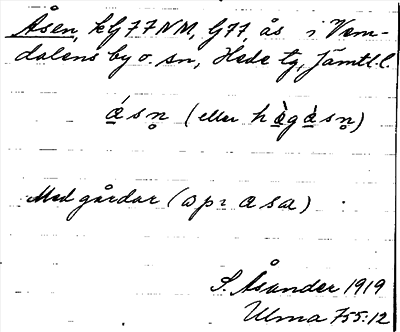 Åsen, kG 77 NM, G77, ås i Vem-
dalens by o. sn, Hede tg, Jämtl.l.
á̱sn̥ (eller hæ̱̀gà̱sn̥)
Med gårdar (ɔpɪ asa)
S. Åsander 1919
Ulma 755:12